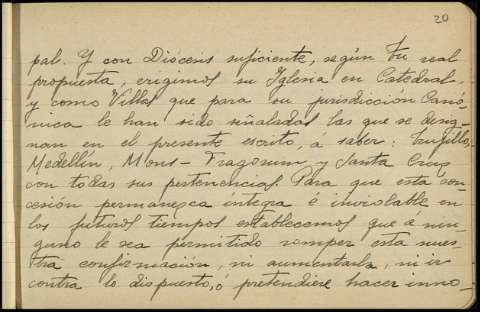 20
pal. Y con Diócesis suficiente, según tu real
propuesta, erigimos su Iglesia en Catedral.
y como Villas que para su jurisdicción Canó-
nica le han sido señaladas las que se desig-
nan en el presente escrito, á saber: Trujillo,
Medellín, Mons-Fragorum y Santa Cruz
con todas sus pertenencias. Para que esta con-
cesión permanezca integra é inviolable en
los futuros tiempos establecemos que á nin-
guno le sea permitido romper esta nues-
tra confirmación, ni aumentarla, ni ir
contra lo dispuesto, ó pretendiere hacer inno-